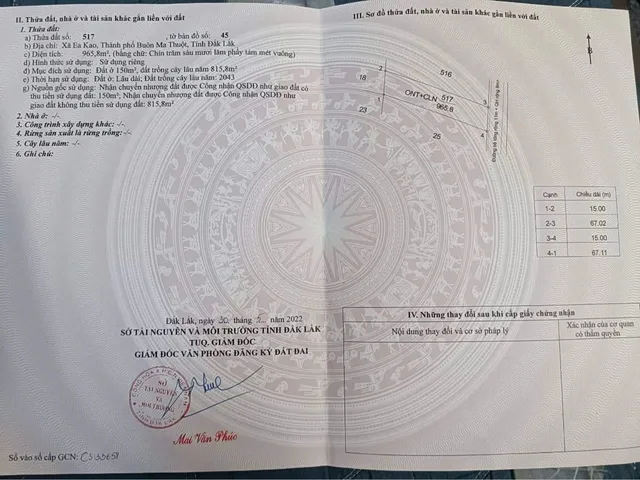 II. Thửa đất, nhà ở và tài sản khác gắn liền với đất
1. Thửa đất:
a) Thửa đất số: 517 , tờ bản đồ số: 45
b) Địa chỉ: Xã Ea Kao, Thành phố Buôn Ma Thuột, Tỉnh Đắk Lắk
c) Diện tích: 965,8m², (bằng chữ: Chín trăm sáu mươi lăm phẩy tám mét vuông)
d) Hình thức sử dụng: Sử dụng riêng
đ) Mục đích sử dụng: Đất ở 150m², đất trồng cây lâu năm 815,8m²
e) Thời hạn sử dụng: Đất ở: Lâu dài; Đất trồng cây lâu năm: 2043
g) Nguồn gốc sử dụng: Nhận chuyển nhượng đất được Công nhận QSDĐ như giao đất có
thu tiền sử dụng đất: 150m²; Nhận chuyển nhượng đất được Công nhận QSDĐ như
giao đất không thu tiền sử dụng đất: 815,8m²
2. Nhà ở: -/-
3. Công trình xây dựng khác: -/-
4. Rừng sản xuất là rừng trồng: -/-
5. Cây lâu năm: -/-
6. Ghi chú:
Đắk Lắk, ngày 30 tháng năm 2022
SỞ TÀI NGUYÊN VÀ MÔI TRƯỜNG TỈNH ĐẮK LẮK
TUQ. GIÁM ĐỐC
GIÁM ĐỐC VĂN PHÒNG ĐĂNG KÝ ĐẤT ĐAI
SỞ
TÀI NGUYÊN
VÀ
MÔI TRƯỜNG
Mai Văn Phúc
Số vào sổ cấp GCN:
III. Sơ đồ thửa đất, nhà ở và tài sản khác gắn liền với đất
B
2
516
18
ONT+CLN 517
965.8
1
3
23
25
4
Cạnh Chiều dài (m)
1-2 15.00
2-3 67.02
3-4 15.00
4-1 67.11
IV. Những thay đổi sau khi cấp giấy chứng nhận
Nội dung thay đổi và cơ sở pháp lý
Xác nhận của cơ quan
có thẩm quyền